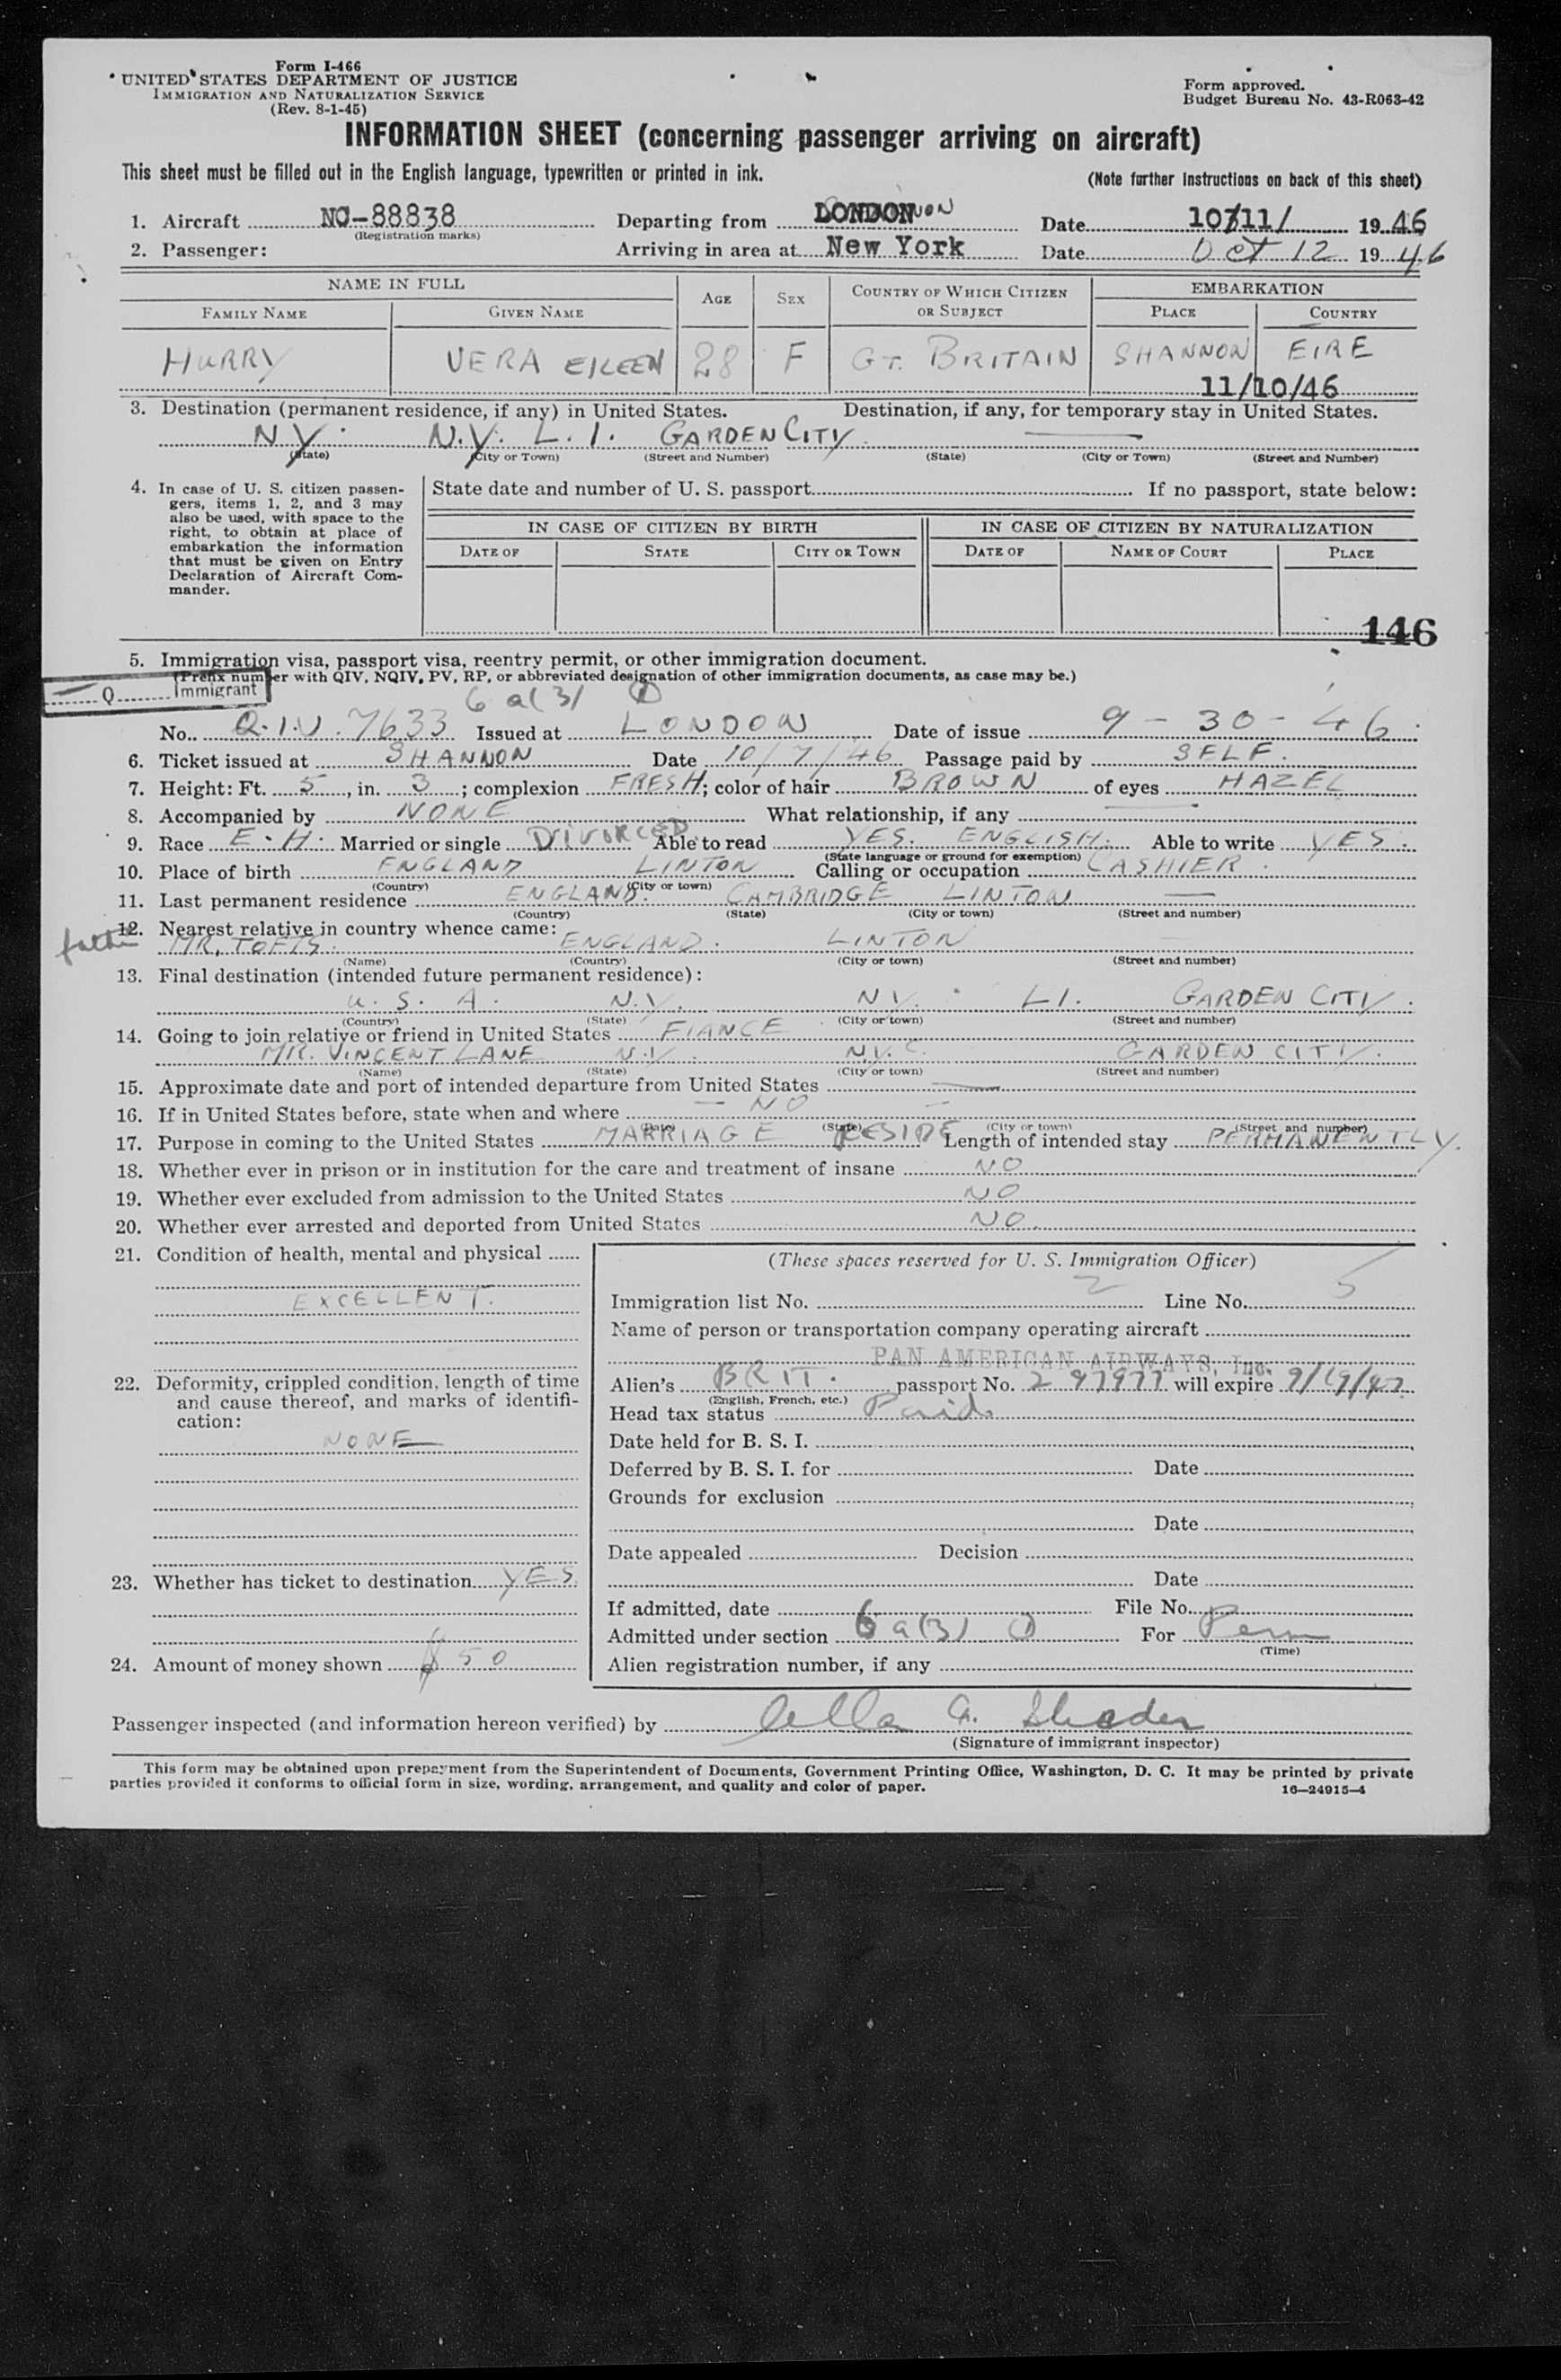 Form I-466
UNITED STATES DEPARTMENT OF JUSTICE
IMMIGRATION AND NATURALIZATION SERVICE
(Rev. 8-1-45)
Form approved.
Budget Bureau No. 43-R063-42
INFORMATION SHEET (concerning passenger arriving on aircraft)
This sheet must be filled out in the English language, typewritten or printed in ink.
(Note further instructions on back of this sheet)
1. Aircraft NC-88838 Departing from LONDON Date 10/11/ 1946
(Registration marks)
2. Passenger: Arriving in area at New York Date Oct 12 1946
NAME IN FULL AGE SEX COUNTRY OF WHICH CITIZEN OR SUBJECT EMBARKATION
FAMILY NAME GIVEN NAME PLACE COUNTRY
HURRY VERA EILEEN 28 F GT. BRITAIN SHANNON EIRE
11/10/46
3. Destination (permanent residence, if any) in United States. Destination, if any, for temporary stay in United States.
N.Y. N.Y. L.I. GARDEN CITY —
(State) (City or Town) (Street and Number) (State) (City or Town) (Street and Number)
4. In case of U. S. citizen passengers, items 1, 2, and 3 may also be used, with space to the right, to obtain at place of embarkation the information that must be given on Entry Declaration of Aircraft Commander.
State date and number of U. S. passport If no passport, state below:
IN CASE OF CITIZEN BY BIRTH IN CASE OF CITIZEN BY NATURALIZATION
DATE OF STATE CITY OR TOWN DATE OF NAME OF COURT PLACE
146
5. Immigration visa, passport visa, reentry permit, or other immigration document.
(Prefix number with QIV, NQIV, PV, RP, or abbreviated designation of other immigration documents, as case may be.)
Q Immigrant
6 a(3) ①
No. Q.I.V. 7633 Issued at LONDON Date of issue 9-30-46.
6. Ticket issued at SHANNON Date 10/7/46 Passage paid by SELF.
7. Height: Ft. 5, in. 3; complexion FRESH; color of hair BROWN of eyes HAZEL
8. Accompanied by NONE What relationship, if any —
9. Race E.H. Married or single DIVORCED Able to read YES. ENGLISH. Able to write YES.
(State language or ground for exemption)
10. Place of birth ENGLAND LINTON Calling or occupation CASHIER.
(Country) (City or town)
11. Last permanent residence ENGLAND. CAMBRIDGE LINTON —
(Country) (State) (City or town) (Street and number)
12. Nearest relative in country whence came:
father MR. TOFTS. ENGLAND. LINTON
(Name) (Country) (City or town) (Street and number)
13. Final destination (intended future permanent residence):
U.S.A. N.Y. N.Y. L.I. GARDEN CITY.
(Country) (State) (City or town) (Street and number)
14. Going to join relative or friend in United States FIANCE
MR. VINCENT LANE N.Y. N.Y.C. GARDEN CITY.
(Name) (State) (City or town) (Street and number)
15. Approximate date and port of intended departure from United States —
16. If in United States before, state when and where — NO —
(Date) (State) (City or town) (Street and number)
17. Purpose in coming to the United States MARRIAGE RESIDE Length of intended stay PERMANENTLY.
18. Whether ever in prison or in institution for the care and treatment of insane NO
19. Whether ever excluded from admission to the United States NO
20. Whether ever arrested and deported from United States NO.
21. Condition of health, mental and physical
EXCELLENT.
22. Deformity, crippled condition, length of time and cause thereof, and marks of identification:
NONE
23. Whether has ticket to destination YES
24. Amount of money shown $50
(These spaces reserved for U. S. Immigration Officer)
Immigration list No. 2 Line No. 5
Name of person or transportation company operating aircraft
PAN AMERICAN AIRWAYS, Inc.
Alien's BRIT. passport No. 297977 will expire 9/19/47
(English, French, etc.)
Head tax status Paid
Date held for B. S. I.
Deferred by B. S. I. for Date
Grounds for exclusion
Date
Date appealed Decision
Date
If admitted, date File No.
Admitted under section 6 a(3) ① For Perm
(Time)
Alien registration number, if any
Passenger inspected (and information hereon verified) by
(Signature of immigrant inspector)
This form may be obtained upon prepayment from the Superintendent of Documents, Government Printing Office, Washington, D. C. It may be printed by private
parties provided it conforms to official form in size, wording, arrangement, and quality and color of paper.
16—24915-4